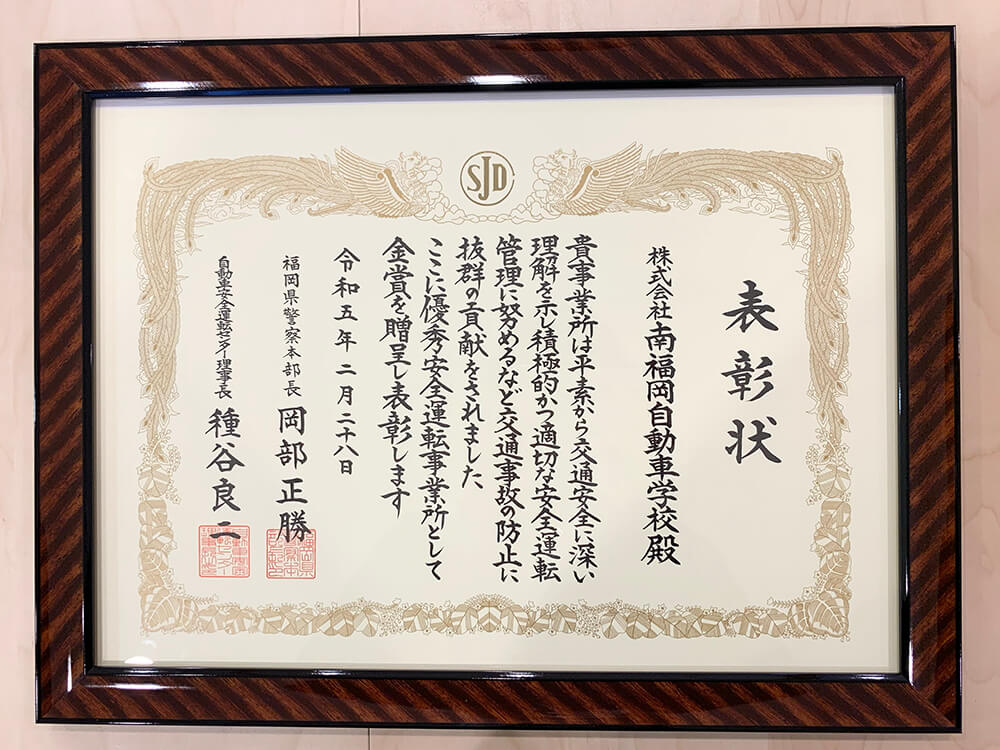 SJD
表彰状
株式会社 南福岡自動車学校殿
貴事業所は平素から交通安全に深い
理解を示し積極的かつ適切な安全運転
管理に努めるなど交通事故の防止に
抜群の貢献をされました
ここに優秀安全運転事業所として
金賞を贈呈し表彰します
令和五年二月二十八日
福岡県警察本部長 岡部正勝
自動車安全運転センター理事長 種谷良二